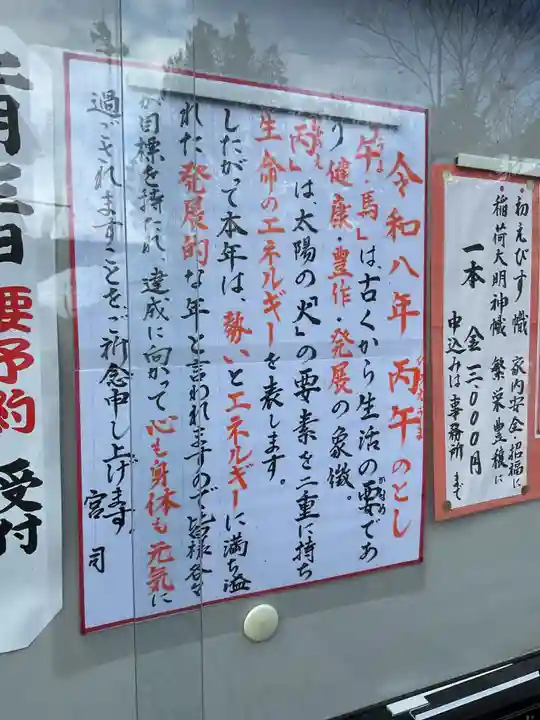 ・初えびす幟 家内安全・招福に
・稲荷大明神幟 繁栄豊穣に
一本 金 三、〇〇〇円
申込みは事務所まで
令和八年 丙午のとし
「午・馬」は、古くから生活の要であ
り 健康・豊作・発展の象徴。
「丙」は、太陽の「火」の要素を二重に持ち
生命のエネルギーを表します。
したがって本年は、勢いとエネルギーに満ち溢
れた 発展的な年と言われますので皆様各々
が目標を持たれ、達成に向かって 心も身体も元気に
過ごされますことをご祈念申し上げます。
宮司
要予約 受付